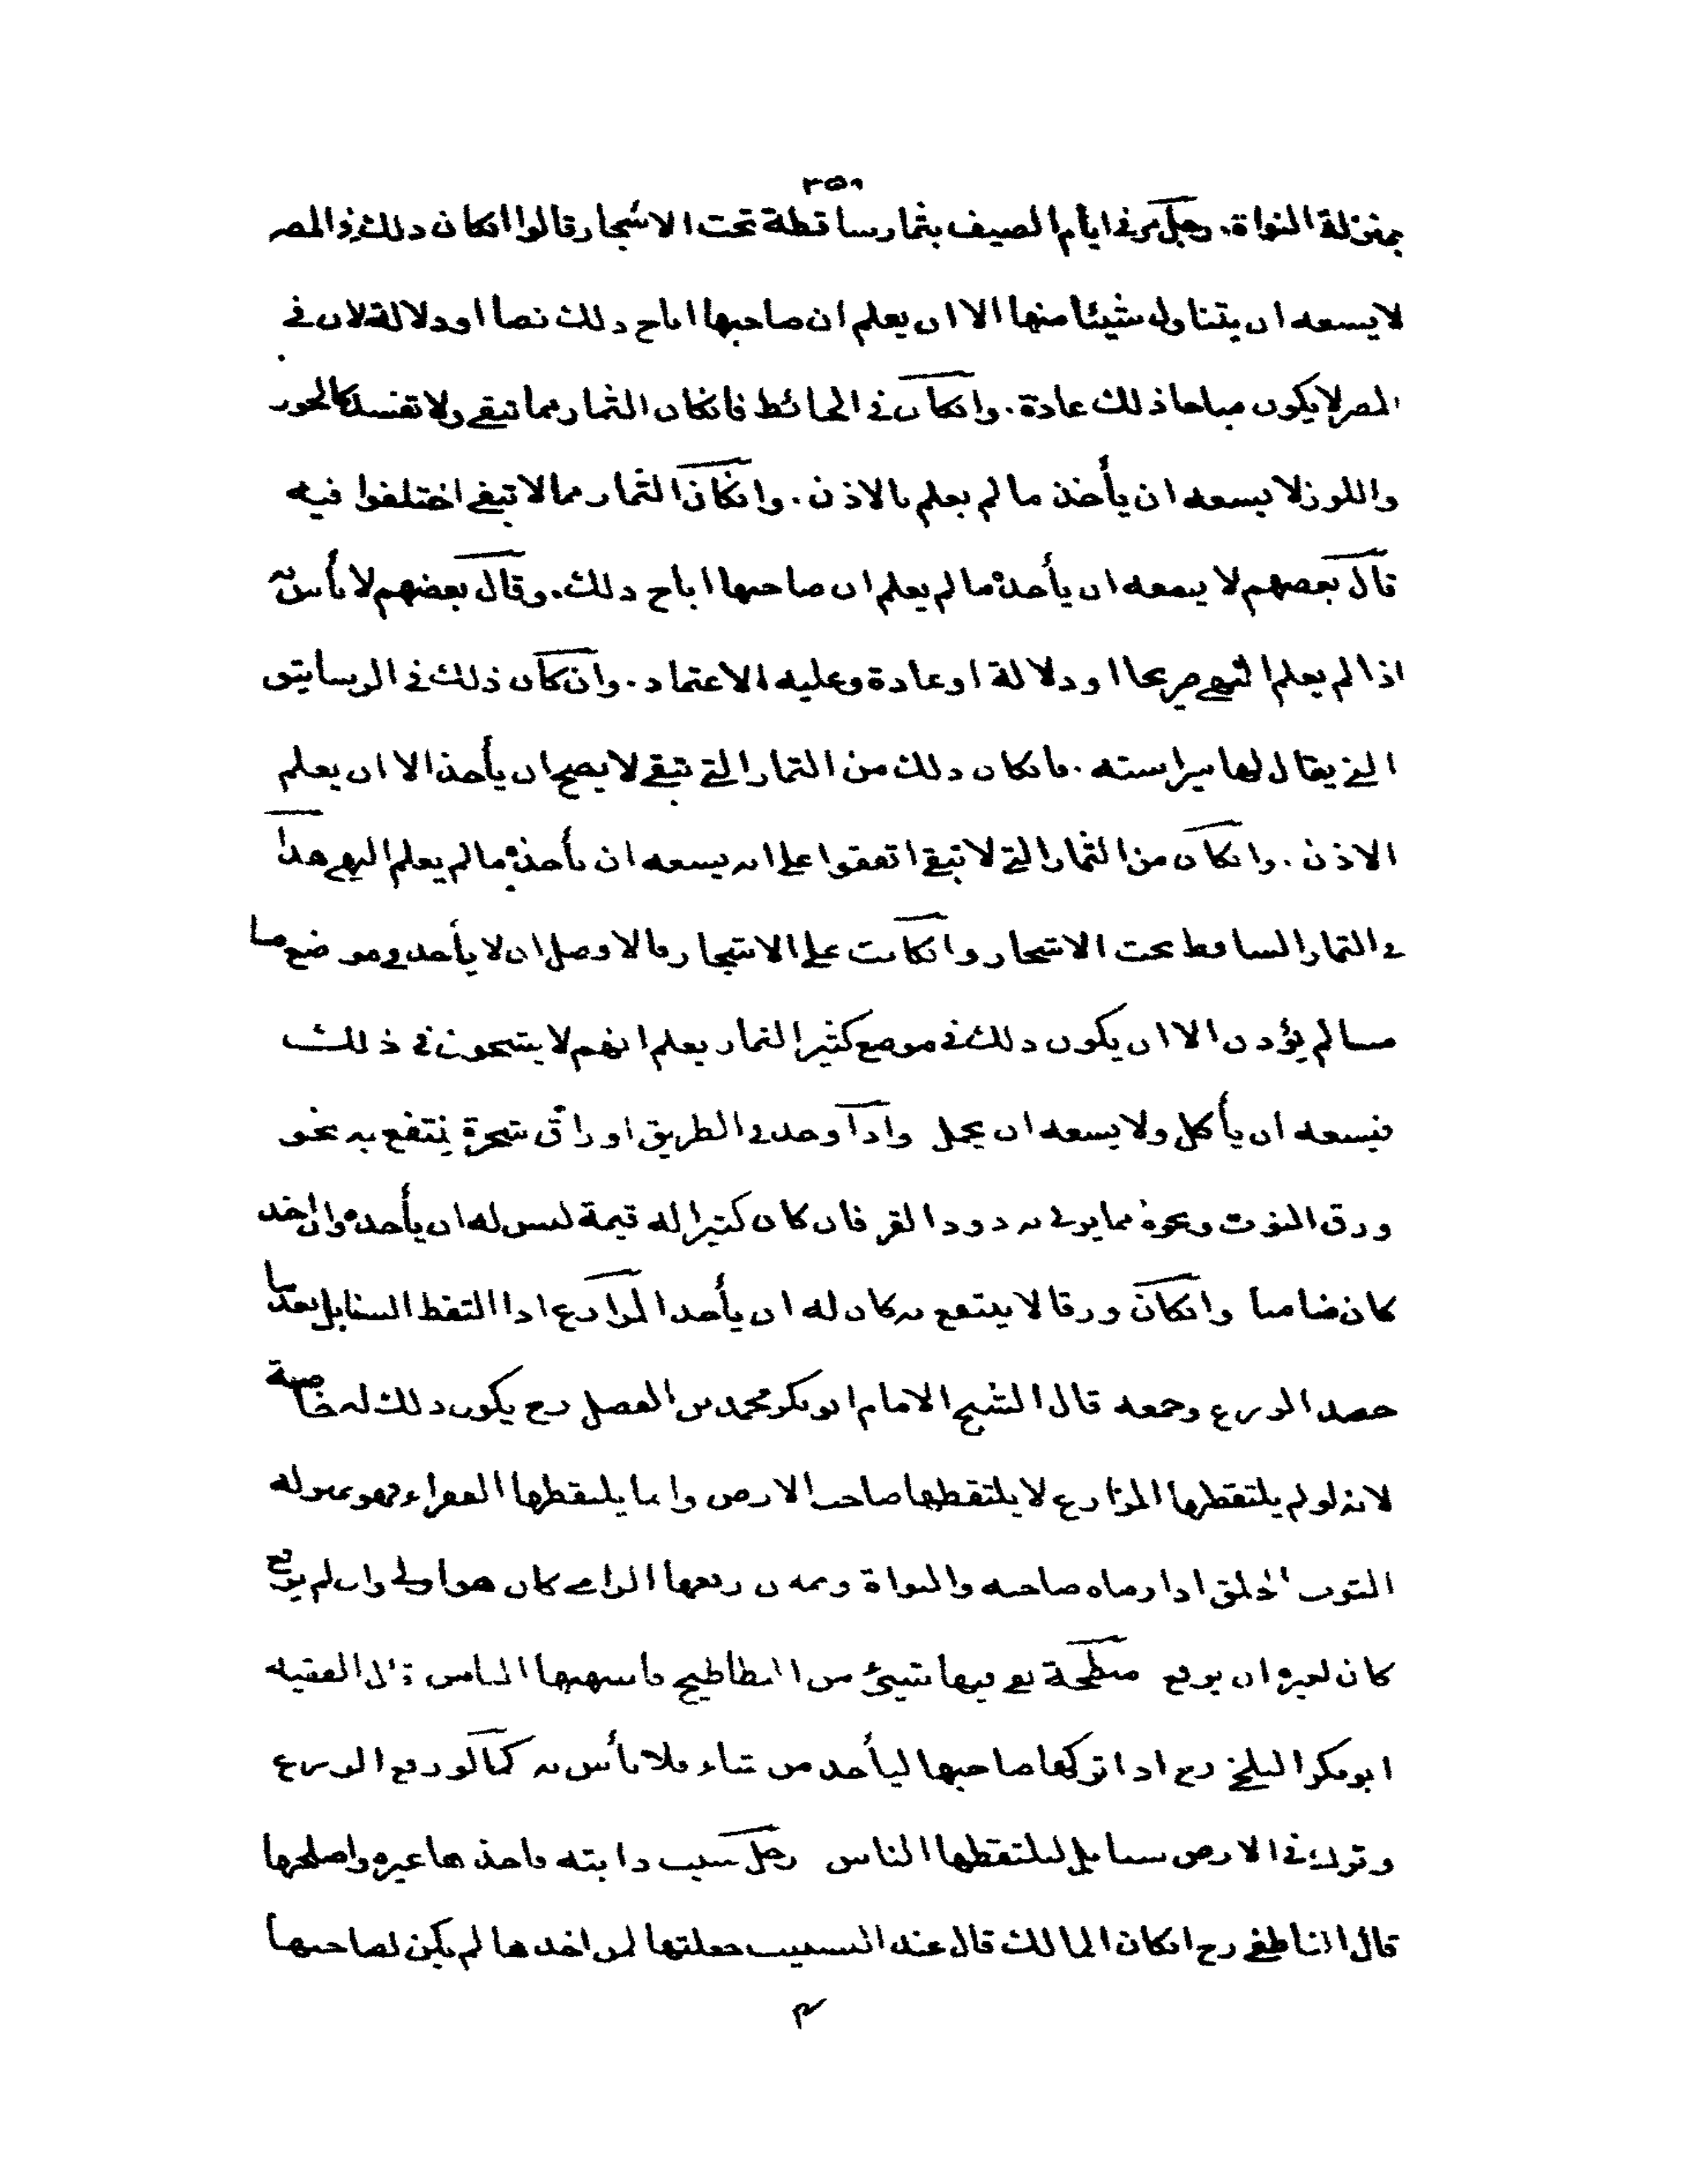 ٣٥٩
بمنزلة النواة. رجل مر في ايام الصيف بثمار ساقطة تحت الاشجار قالوا انكان ذلك في المصر
لا يسعه ان يتناول شيئا منها الا ان يعلم ان صاحبها اباح ذلك نصا او دلالة لان في
المصر لا يكون مباحا ذلك عادة. وانكان في الحائط فانكان الثمار مما تبقى ولا تفسد كالجوز
واللوز لا يسعه ان يأخذ ما لم يعلم بالاذن. وانكان الثمار مما لا تبقى اختلفوا فيه
قال بعضهم لا يسعه ان يأخذ ما لم يعلم ان صاحبها اباح ذلك. وقال بعضهم لا بأس به
اذا لم يعلم النهي صريحا او دلالة او عادة وعليه الاعتماد. وان كان ذلك في الرساتيق
التي يقال لها بيراسته. فانكان ذلك من الثمار التي تبقى لا يصح ان يأخذ الا ان يعلم
الاذن. وانكان من الثمار التي لا تبقى اتفقوا على انه يسعه ان يأخذ ما لم يعلم النهي هذا
في الثمار الساقط تحت الاشجار وانكانت على الاشجار فالافضل ان لا يأخذ في موضع ما
ما لم يؤذن الا ان يكون ذلك في موضع كثير الثمار يعلم انهم لا يشحون في ذلك
فيسعه ان يأكل ولا يسعه ان يحمل واذا وجد في الطريق اوراق شجرة ينتفع به نحو
ورق التوت ونحوه مما يربى به دود القز فان كان كثيرا له قيمة ليس له ان يأخذه وان اخذ
كان ضامنا وانكان ورقا لا ينتفع به كان له ان يأخذ المزارع اذا التقط السنابل بعد ما
حصد الزرع وجمعه قال الشيخ الامام ابو بكر محمد بن الفضل رح يكون ذلك له خاصة
لانه لو لم يلتقطها المزارع لا يلتقطها صاحب الارض وانما يلتقطها الفقراء فهو بمنزلة
الثوب الخلق اذا رماه صاحبه والنواة رفعها الرامي كان هو اولى وان لم يرفع
كان لغيره ان يرفع مبطخة بقي فيها شيئ من البطاطيخ فانتهبها الناس قال الفقيه
ابو بكر البلخي رح اذا تركها صاحبها ليأخذ من شاء فلا بأس به كما لو رفع الزرع
وترك في الارض سنابل ليلتقطها الناس رجل سيب دابته فاخذها غيره واصلحها
قال الناطفي رح انكان المالك قال عند التسييب جعلتها لمن اخذها لم يكن لصاحبها